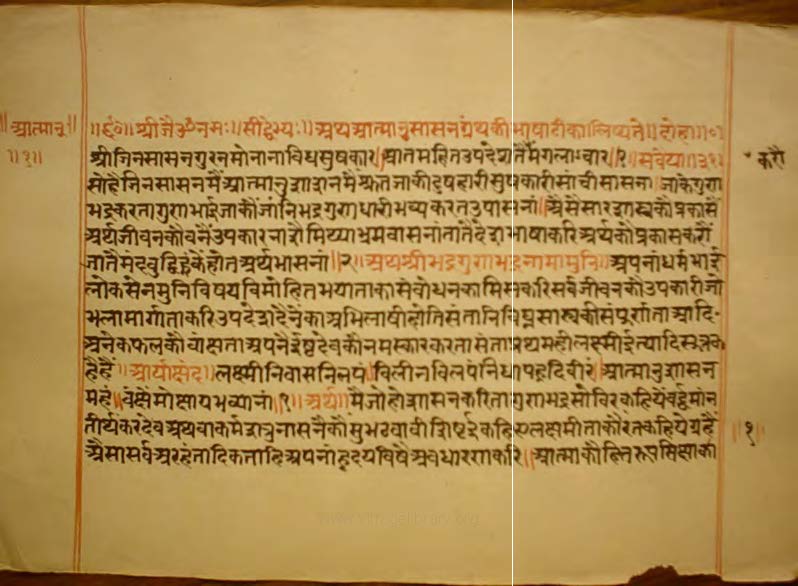 ॥ आत्मानु॥
॥१॥
॥६०॥ श्रीजैॐनमः॥ सीद्धेभ्यः॥ अथ आत्मानुसासनग्रंथकी भाषाटीका लिष्यते॥ दोहा॥
श्रीजिनसासनगुरनमो नानाविधसुषकार॥ आतमहितउपदेशतें मंगलाचार॥१॥ सवैया॥३१॥
सोहै जिनसासनमैं आत्मानुशासन जाकी दुषहारी सुषकारी सांची सासना॥ जाकेगुण
भद्रकरता गुणभद्र जाकौं जांनि भद्रगुणधारी भव्य करत उपासना॥ अैसे सार शास्त्रकौ प्रकासैं
अर्थ जीवनकौ बनैं उपकार नाशै मिथ्याभ्रमवासना तातैं देशभाषाकरि अर्थकौ प्रकास करौं
जातैं मंदबुद्धिहूकै होत अर्थभासनां॥२॥ अथ श्रीभद्रगुणभद्रनामामुनि॥ अपनां धर्मभाई
लोकसेनमुनि विषयविमोहित भया ताका संबोधनका मिसकरि सर्वजीवनकौ उपकारी जो
भला मार्ग ताका उपदेश देनेंका अभिलाषी होत संता निर्विघ्न शास्त्रकी संपूर्णता आदि
अनेक फलकौं वांछता अपनें ईष्टदेवकौं नमस्कार करता संता प्रथमही लक्ष्मी ईत्यादि सूत्र क
है हैं॥ आर्याछंद॥ लक्ष्मीनिवासनिलयं॥ विलीनविलयं निधाय हृदि वीरं॥ आत्मानुशासन
महं॥ वक्ष्ये मोक्षाय भव्यानां॥१॥ अर्थ॥ मैं जो हों शासनकरिता गुणभद्र सो वीर कहिये वर्द्धमांन
तीर्थंकरदेव अथवा कर्मशत्रु नासनेंकौं सुभट वा विशिष्ट ई कहिए लक्ष्मी ताकौं रत कहिये ग्रहै
अैसा सर्व अरहंतादिक ताहि अपनां हृदय विषै अवधारणकरि॥ आत्माकौं हितरूप सिक्षाका
करौ
॥१॥